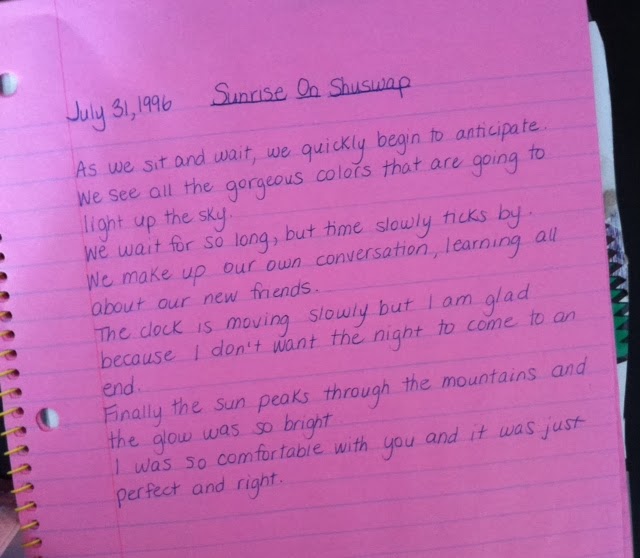 July 31, 1996 Sunrise On Shuswap
As we sit and wait, we quickly begin to anticipate.
We see all the gorgeous colors that are going to
light up the sky.
We wait for so long, but time slowly ticks by.
We make up our own conversation, learning all
about our new friends.
The clock is moving slowly but I am glad
because I don't want the night to come to an
end.
Finally the sun peaks through the mountains and
the glow was so bright.
I was so comfortable with you and it was just
perfect and right.